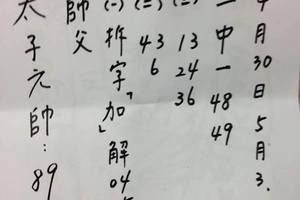 月30日5月3.
中一 48 49
13 24 36
(二) 43 6
(一) 拆字「加」解 04
帥父
太子元帥:89